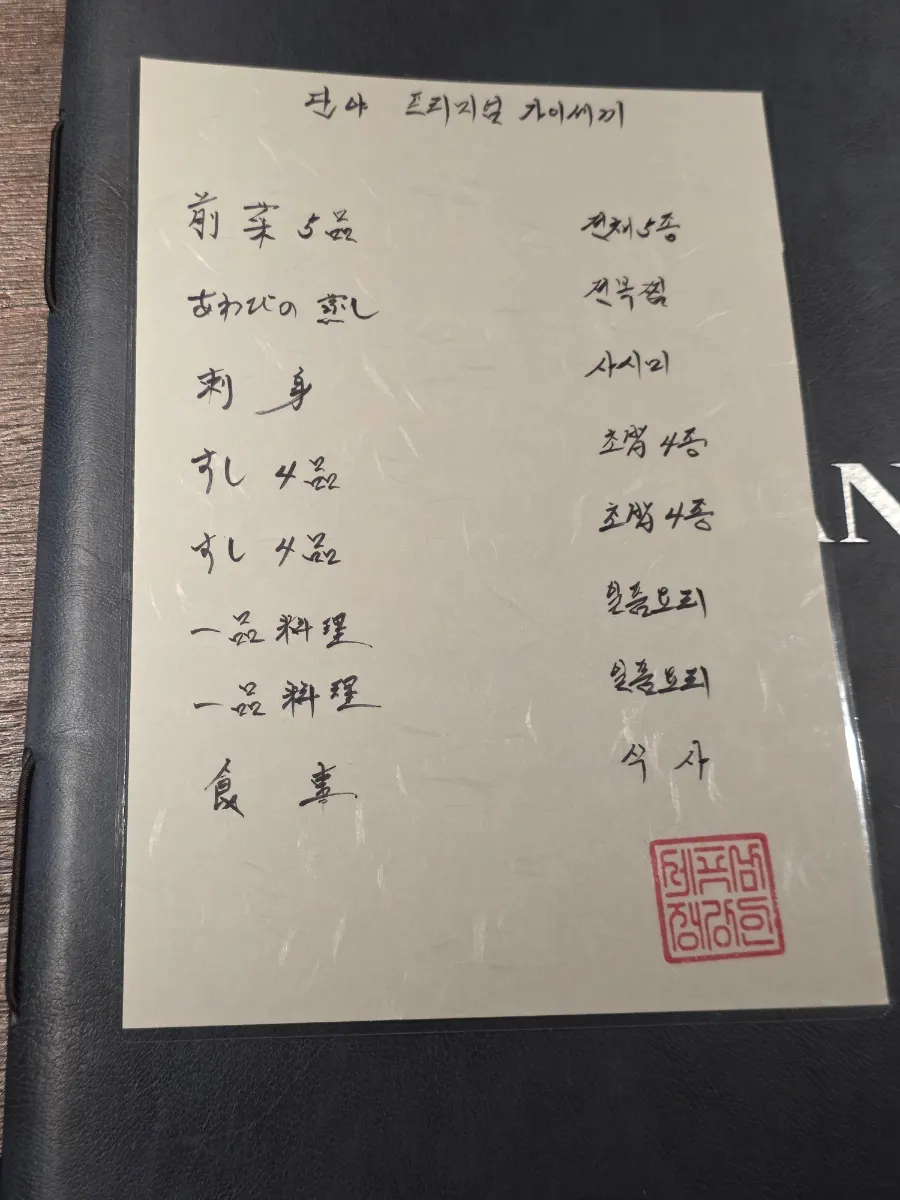 단야 프리미엄 가이세끼
前菜 5品 전채 5종
あわびの蒸し 전복찜
刺身 사시미
すし 4品 초밥 4종
すし 4品 초밥 4종
一品料理 일품요리
一品料理 일품요리
食事 식사
AN